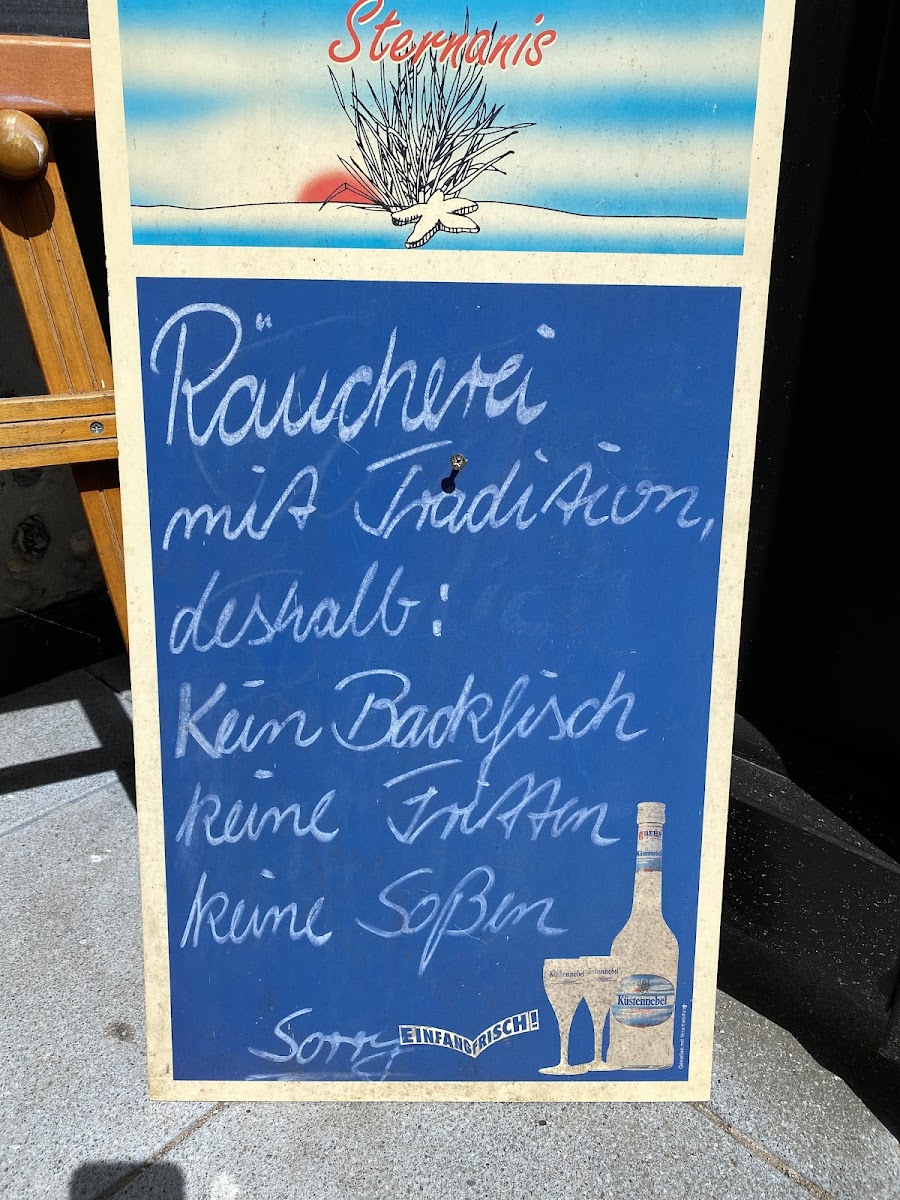 Sternanis
Räucherei
mit Tradition,
deshalb:
Kein Backfisch
keine Fritten
keine Soßen
Sorry
EINFANGFRISCH!
BEHN
Küstennebel
Küstennebel
Küstennebel
Küstennebel